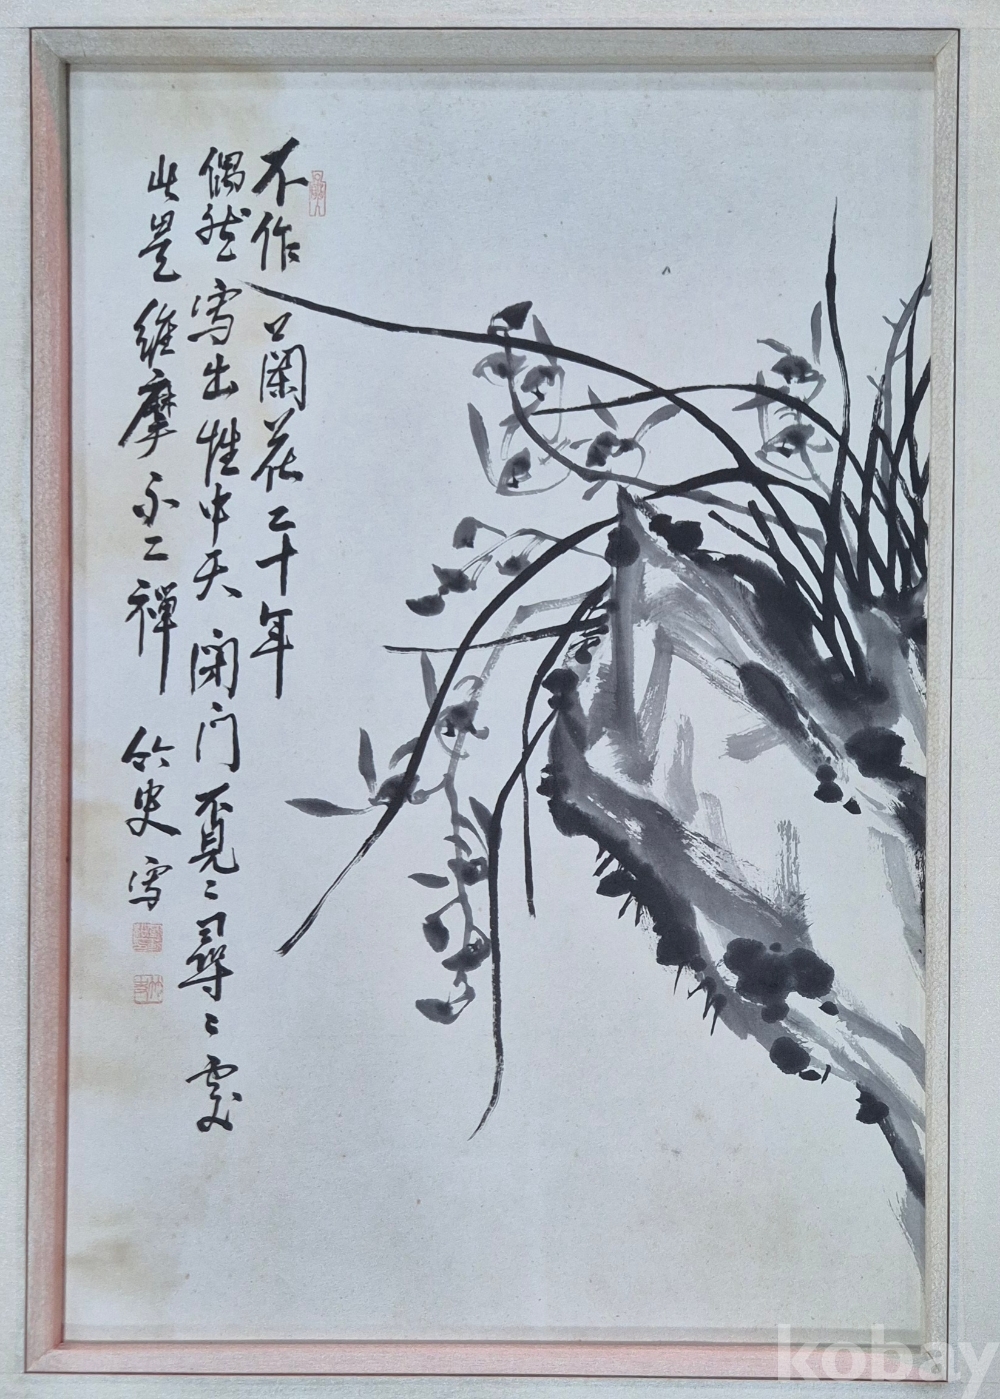 不作蘭花二十年
偶然寫出性中天閉門覓〻尋〻處
此是維摩不二禪 竹史寫
kobay